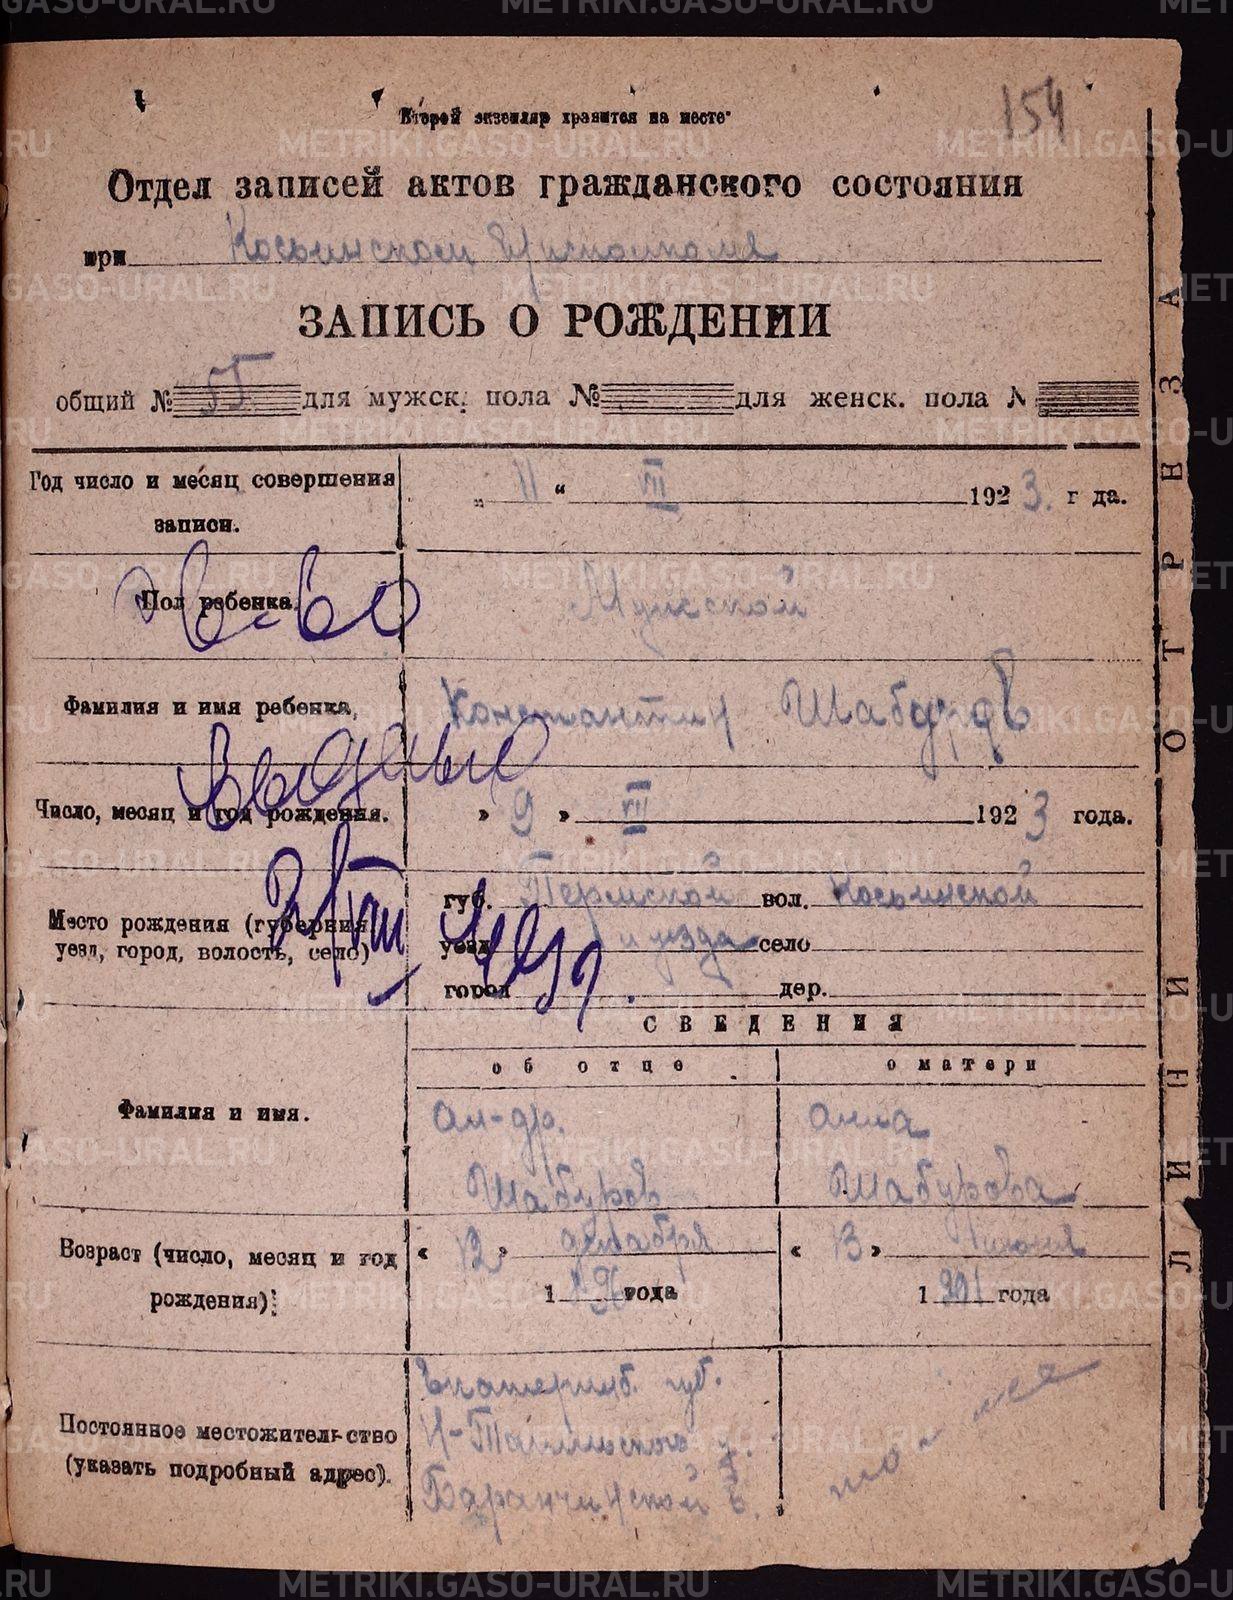 154
Второй экземпляр хранится на месте
Отдел записей актов гражданского состояния
при Косьинском
ЗАПИСЬ О РОЖДЕНИИ
общий № 55 для мужск. пола № для женск. пола №
Год число и месяц совершения записи.
„ 11 “ VII 1923. г да.
Пол ребенка.
Мужской
св-во
Фамилия и имя ребенка,
Константин Шабуров
выдано
Число, месяц и год рождения.
„ 9 „ VII 1923 года.
Место рождения (губерния
уезд, город, волость, село)
губ. Пермской вол. Косьинской
уезд и уезда село
город дер.
СВЕДЕНИЯ
об отце о матери
Фамилия и имя.
Ал-др. Анна
Шабуров Шабурова
Возраст (число, месяц и год
рождения)
« 12 » декабря « 13 » июня
1896 года 1901 года
Постоянное местожительство
(указать подробный адрес).
Екатеринб. губ.
Н-Тагильского у.
Баранчинской в.
то же
ЛИНИЙ ОТРЫЗА
METRIKI.GASO-URAL.RU